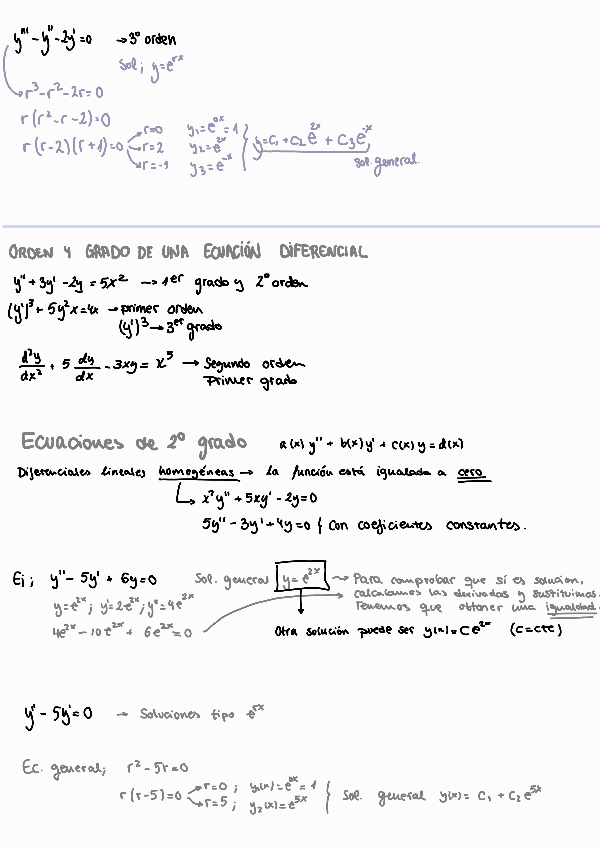 y''' - y'' - 2y' = 0 → 3º orden
Sol; y = e^rx
r³ - r² - 2r = 0
r(r² - r - 2) = 0
r(r-2)(r+1) = 0 → r=0 y₁ = e^0x = 1
→ r=2 y₂ = e^2x
→ r=-1 y₃ = e^-x } y = C₁ + C₂e^2x + C₃e^-x
Sol. general.
ORDEN Y GRADO DE UNA ECUACIÓN DIFERENCIAL
y'' + 3y' - 2y = 5x² → 1er grado y 2º orden
(y')³ + 5y²x = 4x → primer orden
(y')³ → 3er grado
d²y/dx² + 5 dy/dx - 3xy = x⁵ → Segundo orden
Primer grado
Ecuaciones de 2º grado a(x) y'' + b(x) y' + c(x) y = d(x)
Diferenciales lineales homegéneas → la función está igualada a cero
↳ x²y'' + 5xy' - 2y = 0
5y'' - 3y' + 4y = 0 { con coeficientes constantes.
Ej; y'' - 5y' + 6y = 0 Sol. general y = e^2x → Para comprobar que sí es solución,
y = e^2x; y' = 2e^2x; y'' = 4e^2x calculamos las derivadas y sustituimos.
Tenemos que obtener una igualdad.
4e^2x - 10e^2x + 6e^2x = 0
Otra solución puede ser y(x) = Ce^2x (C = cte)
y'' - 5y' = 0 → Soluciones tipo e^rx
Ec. general; r² - 5r = 0
r(r-5) = 0 → r=0; y₁(x) = e^0x = 1
→ r=5; y₂(x) = e^5x } Sol. general y(x) = C₁ + C₂e^5x